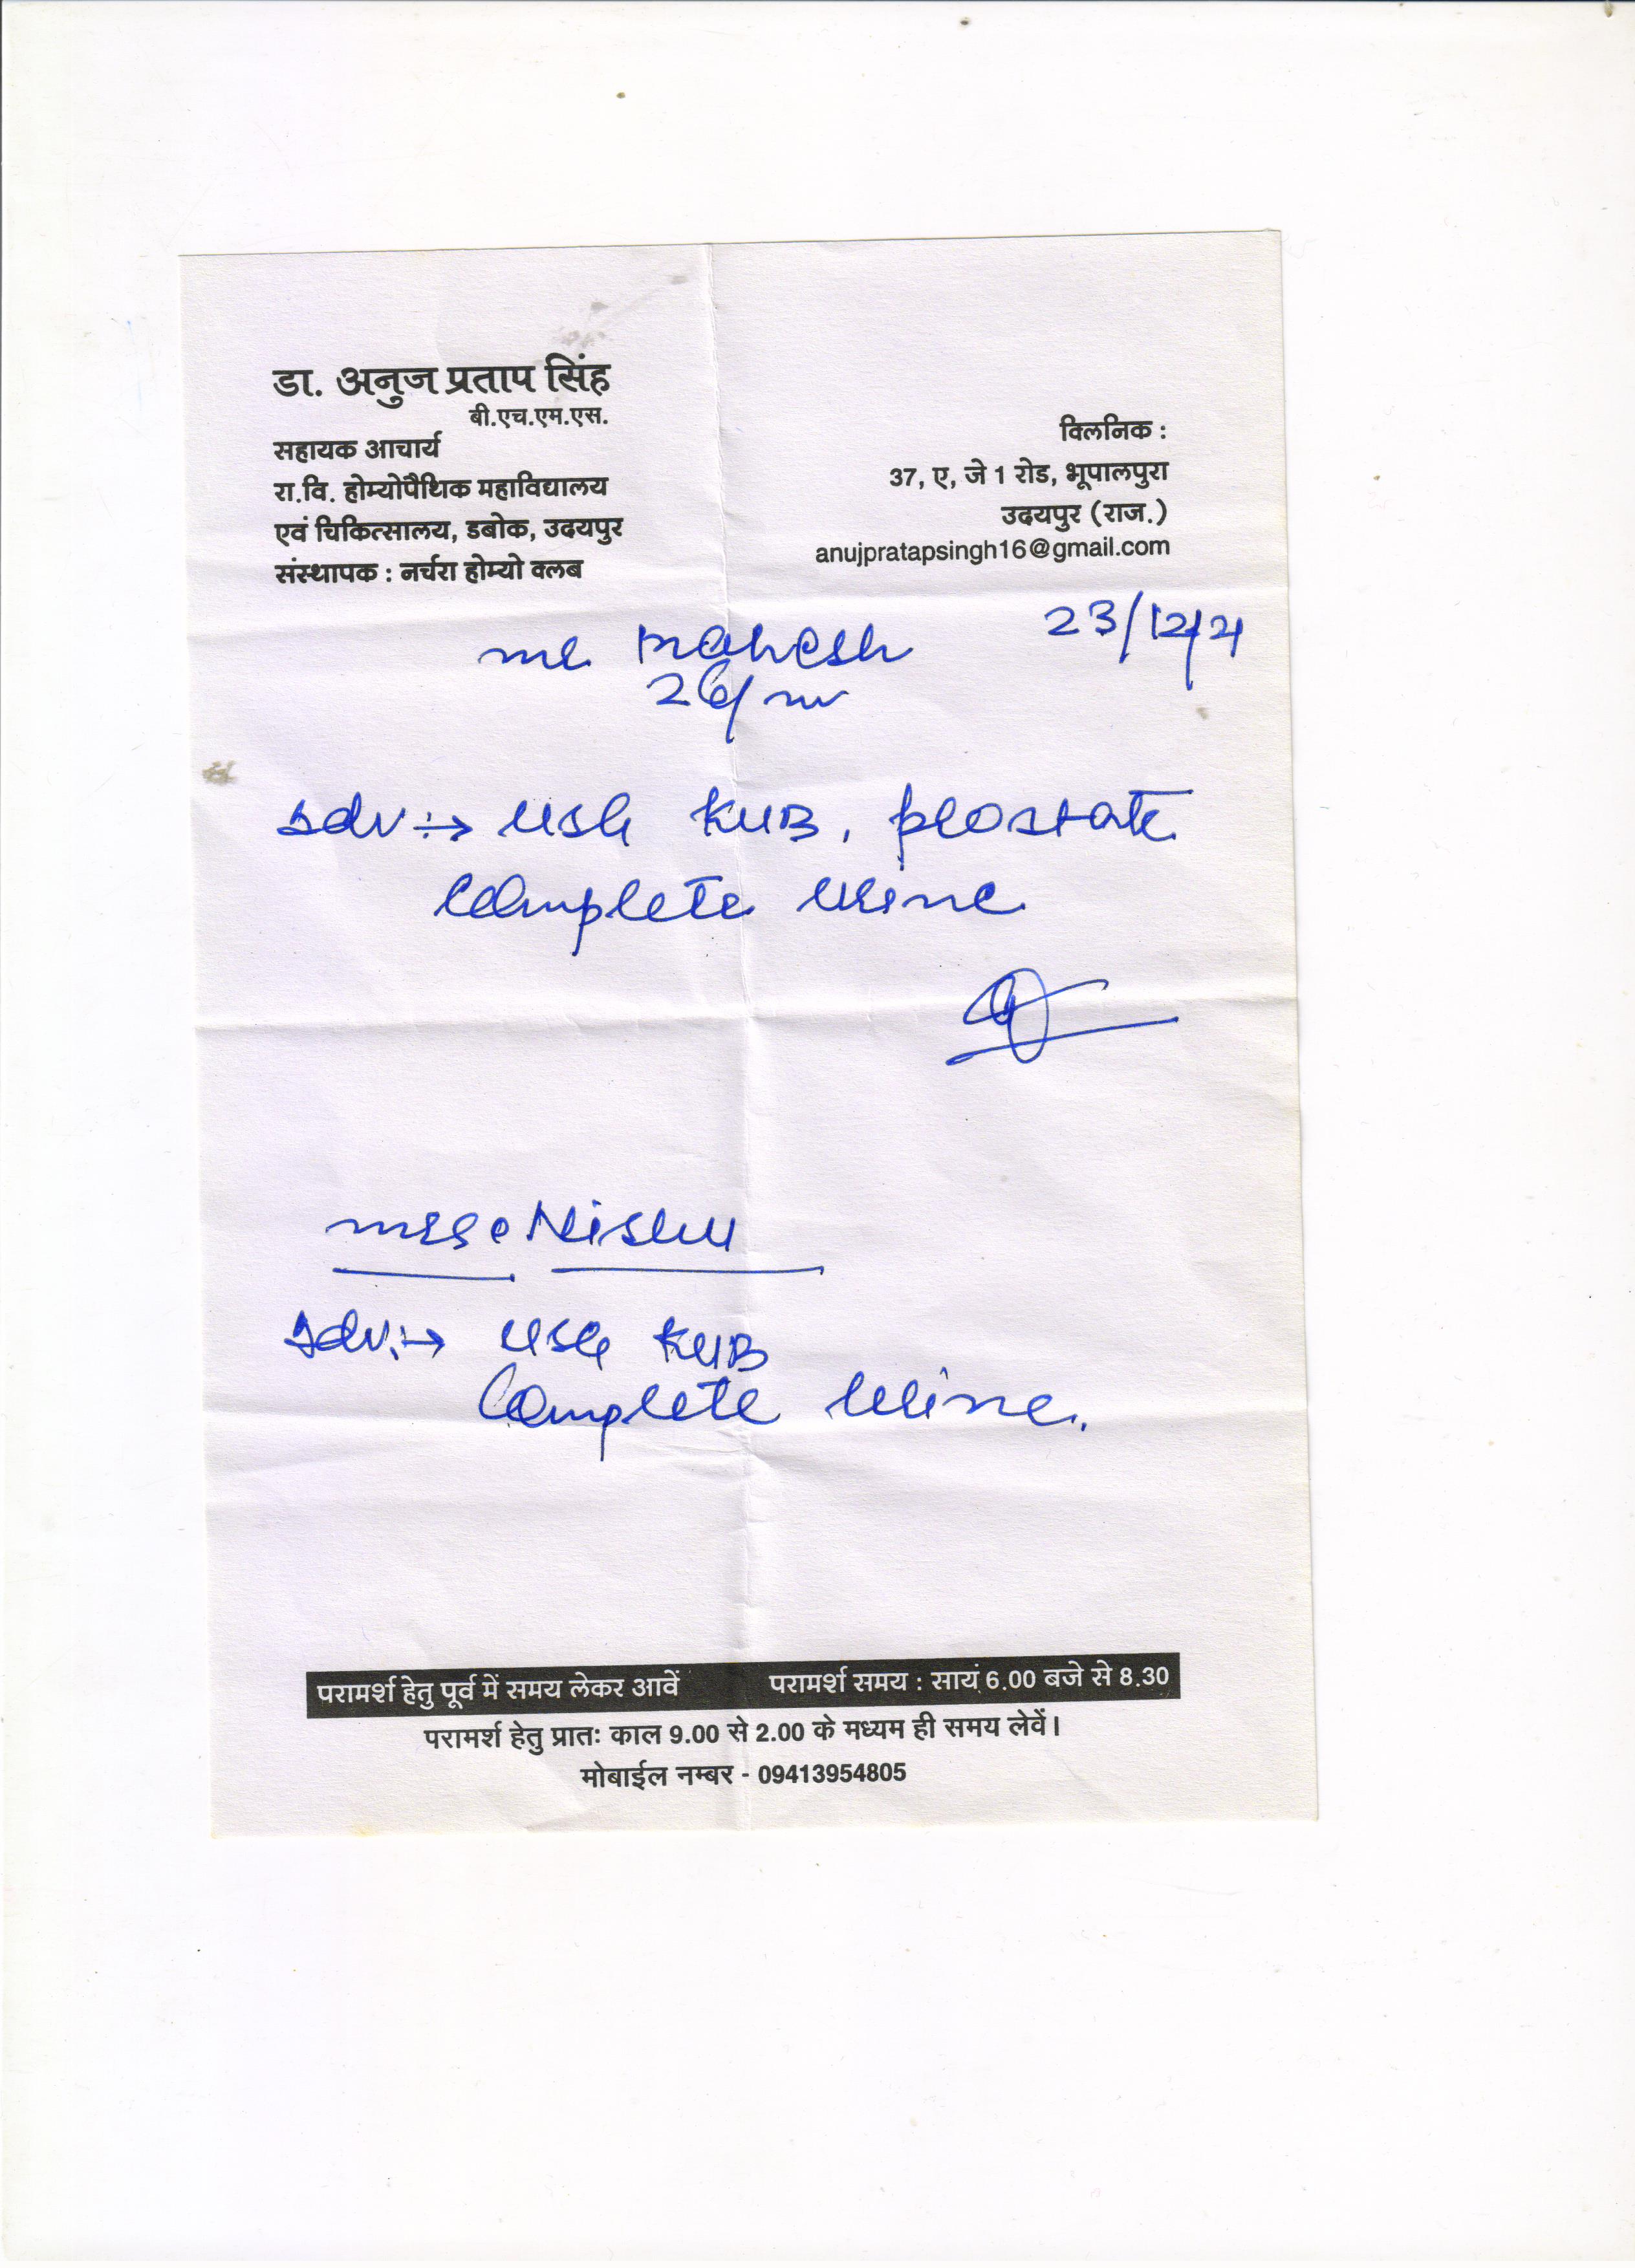 डा. अनुज प्रताप सिंह
बी.एच.एम.एस.
सहायक आचार्य
रा.वि. होम्योपैथिक महाविद्यालय
एवं चिकित्सालय, डबोक, उदयपुर
संस्थापक : नर्चरा होम्यो क्लब
क्लिनिक :
37, ए, जे 1 रोड, भूपालपुरा
उदयपुर (राज.)
anujpratapsingh16@gmail.com
23/12/21
Mr Mahesh
26/m
Adv:→ USG KUB, prostate
Complete Urine
Mrs. Nishu
Adv:→ USG KUB
Complete Urine.
परामर्श हेतु पूर्व में समय लेकर आवें परामर्श समय : सायं 6.00 बजे से 8.30
परामर्श हेतु प्रातः काल 9.00 से 2.00 के मध्यम ही समय लेवें।
मोबाईल नम्बर - 09413954805